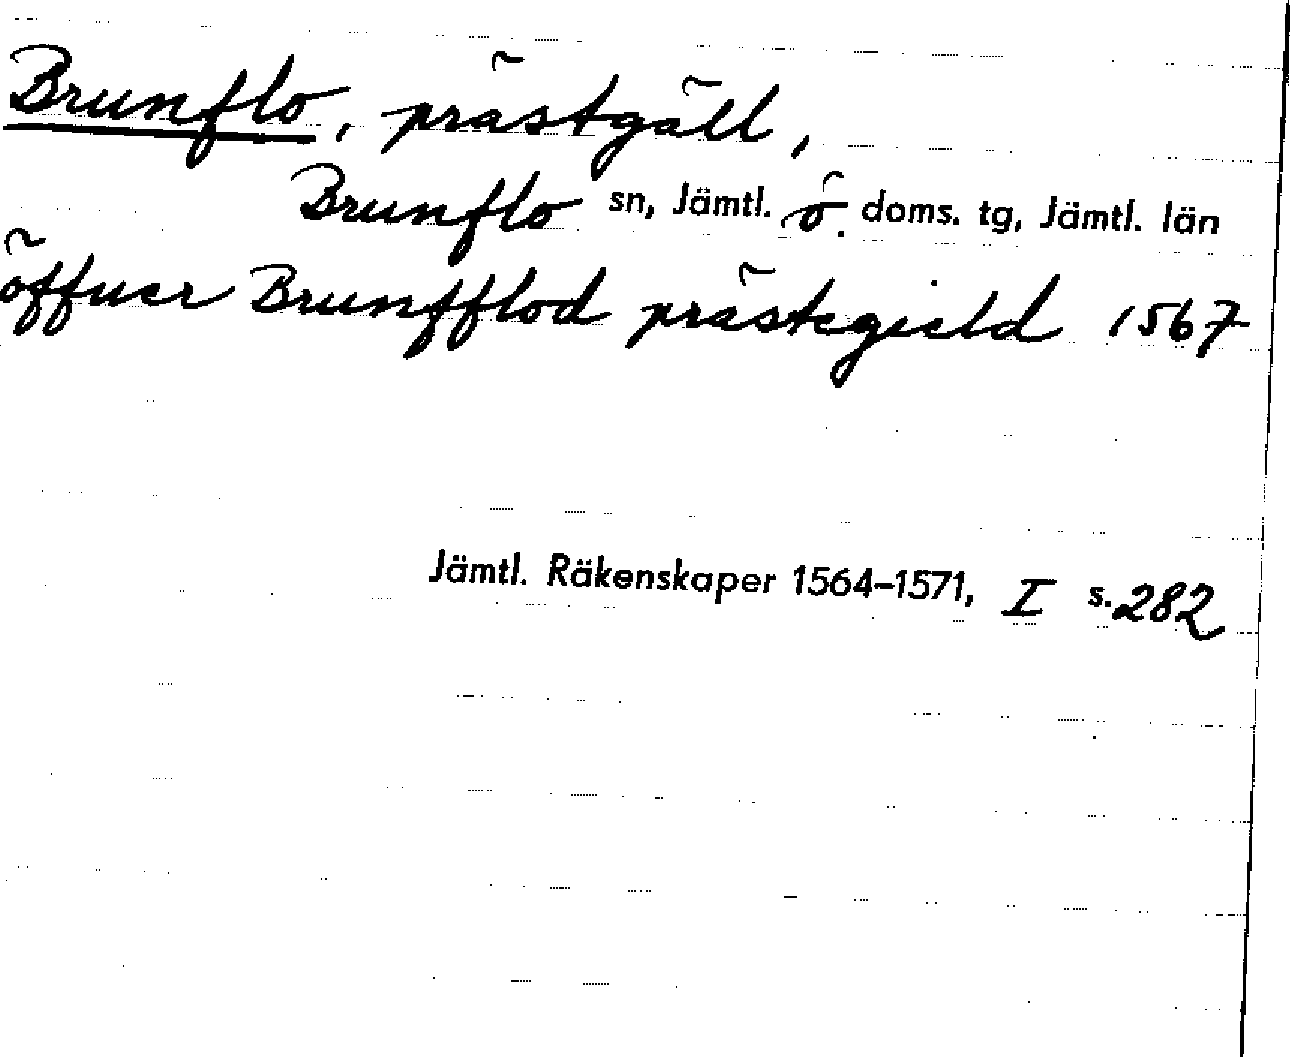 Brunflo, prästgäll,
Brunflo sn, Jämtl. ö. doms. tg, Jämtl. län
öffuer Brunfflod prästegield 1567
Jämtl. Räkenskaper 1564–1571, I s. 282